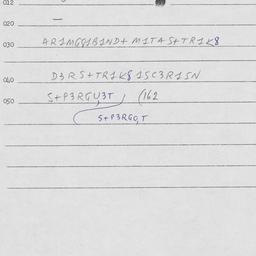 012
020 —
030 AR1MGG1B1ND+ M1TA S+TR1K8
040 D3RS+TR1K81SC3R1SN
050 S+P3RGU,3T, (162
S+P3RGO,T